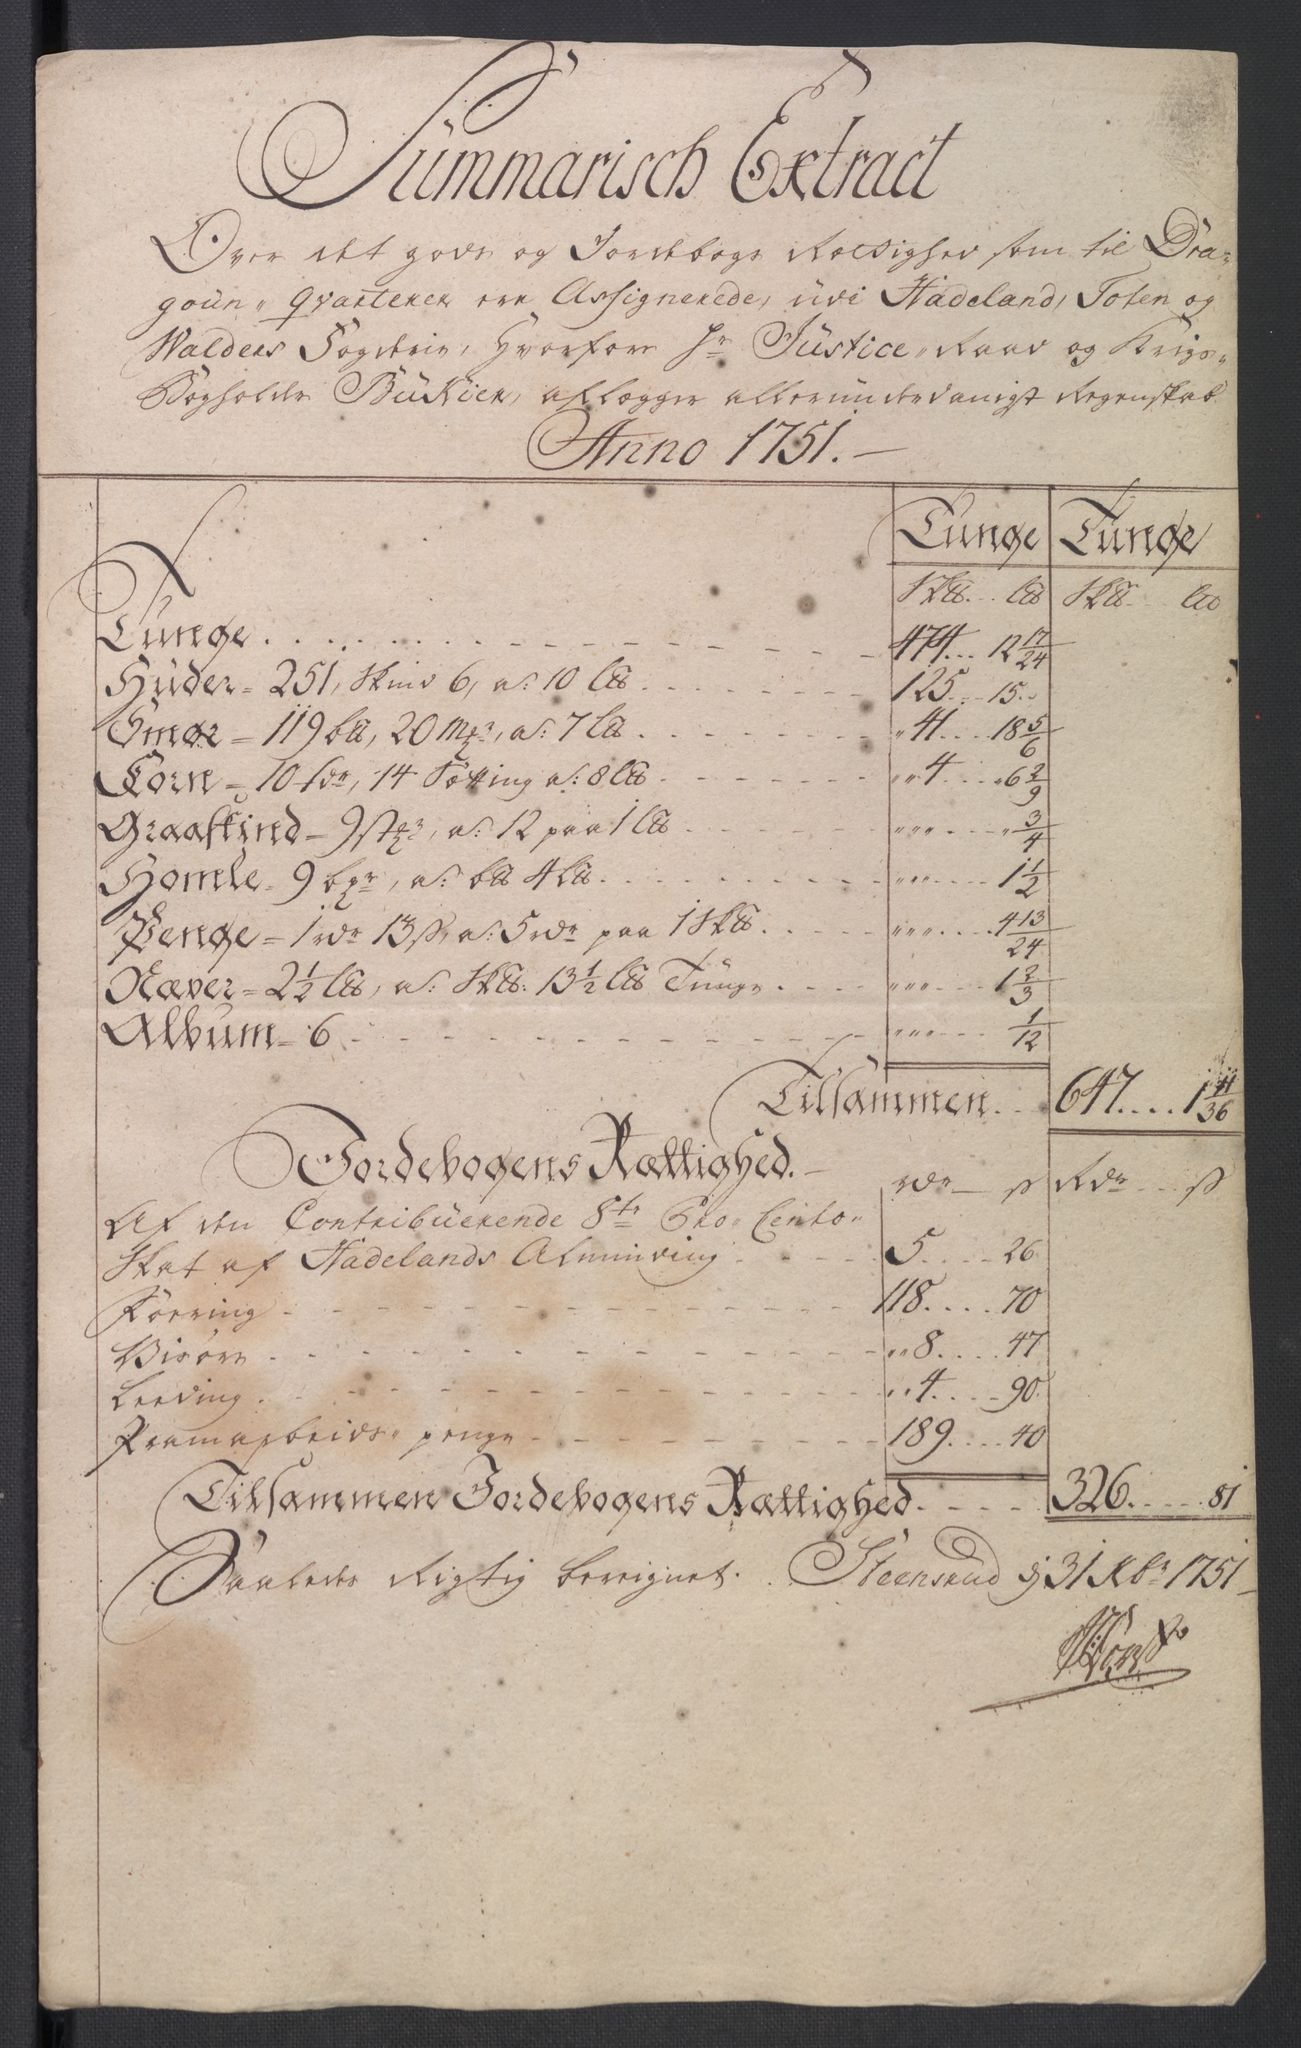 Summarisch Extract
Over det gods og Jordebogs Rettighed som til Dra-
goun- Qvarterer ere Assignerede, udi Hadeland, Toten og
Walders Fogderie, Hvorfore Hr Justice-Raad og Krigs-
Bogholder aflegger allerunderdanigst Regenskab
Anno 1751.
Tunge Tunge
Sk℔ ... l℔ Sk℔ ... l℔
Tunge . . . 474 ... 12 17/24
Huder - 251, Skind 6, a: 10 l℔ . . . 125 ... 15
Smør - 119 b℔, 20 Mk, a: 7 l℔ . . . 41 ... 18 5/6
Korn - 10 tdr, 14 Sötting a: 8 l℔ . . . 4 ... 6 2/9
Graaskind - 9 stk, a: 12 paa 1 l℔ . . . 3/4
Homle - 9 , a: b℔ 4 l℔ . . . 1 1/2
Penge - 1 rdr 13 ß, a: 5 rdr paa 1 Sk℔ . . . 4 13/24
Næver - 2 1/2 l℔, a: Sk℔: 13 1/2 l℔ Tunge . . . 1 2/3
Album - 6 . . . 1/12
Tilsammen . . . 647 .... 1 11/36
Jordebogens Rættighed. rdr — ß Rdr — ß
Af den Contribuerende 8te Pro Cento-
Skat af Hadelands Alminding . . . 5 .... 26
Foering . . . 118 .... 70
Visöre . . . 8 .... 47
Leeding . . . 4 .... 90
Framarbeids- penge . . . 189 .... 40
Tilsammen Jordebogens Rættighed . . . 326 .... 81
Saaledes Rigtig beregnet. Steensrud d 31 Xbr 1751